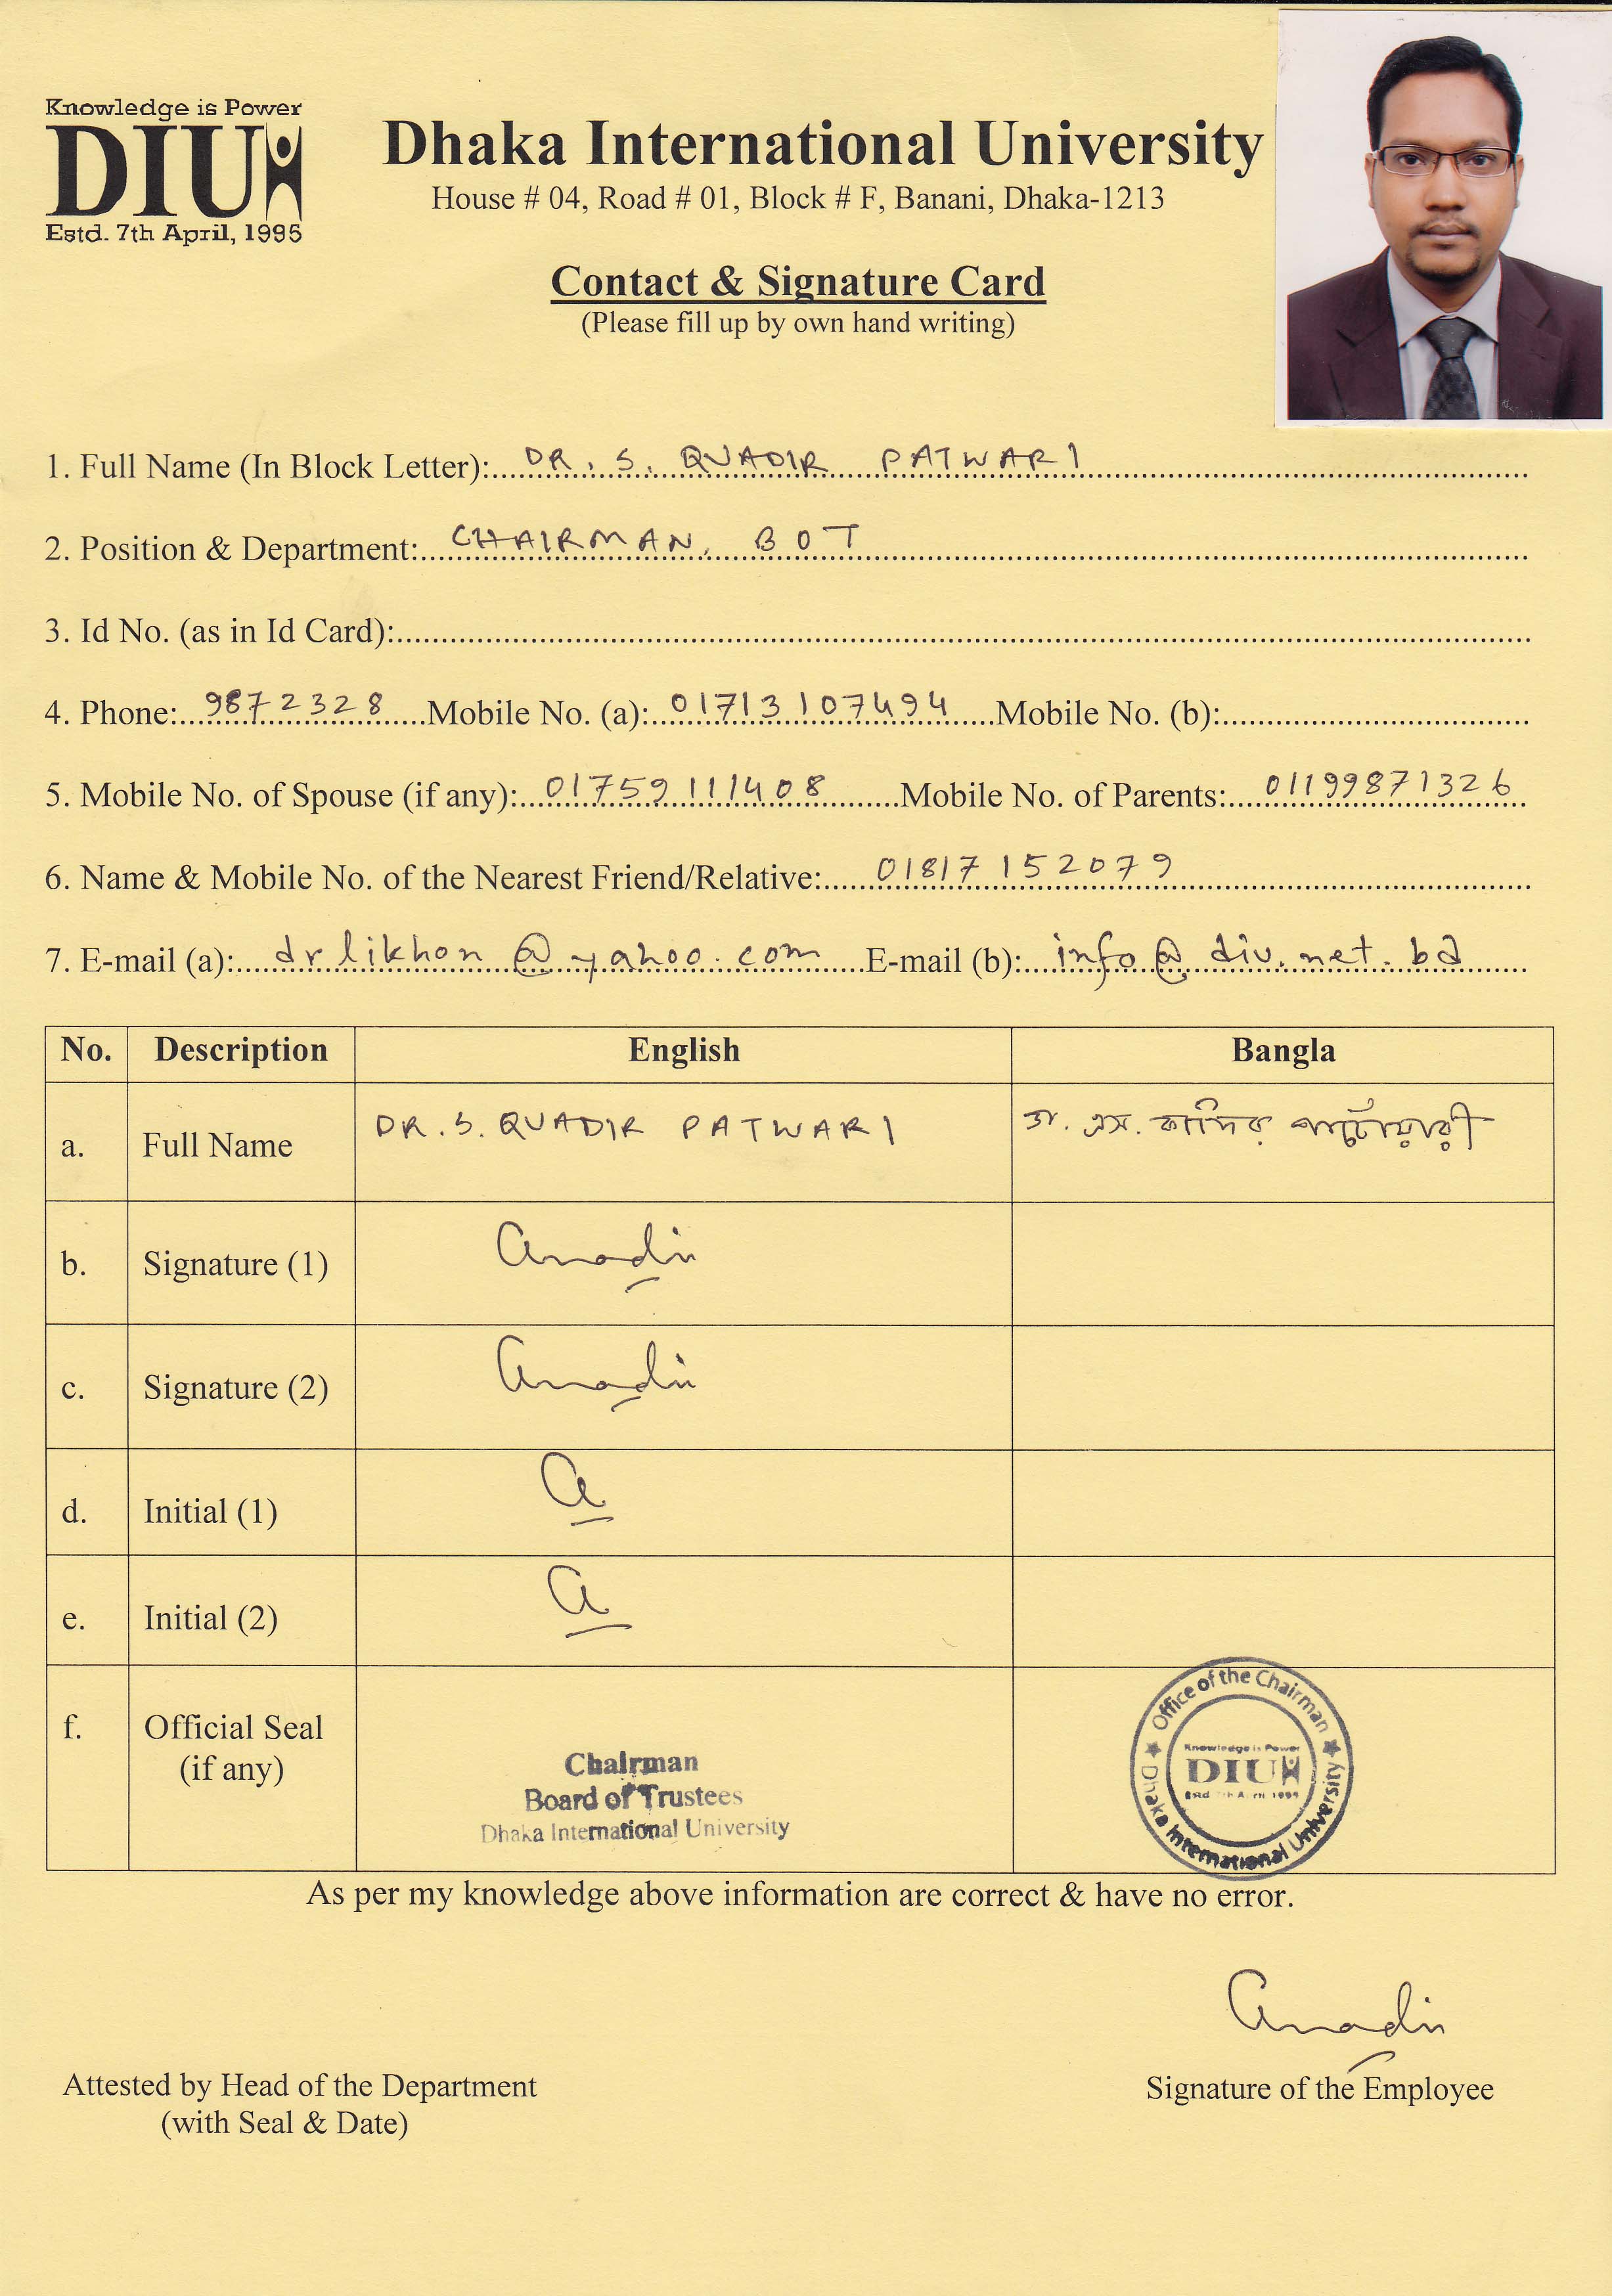 Knowledge is Power
DIU
Estd. 7th April, 1995
Dhaka International University
House # 04, Road # 01, Block # F, Banani, Dhaka-1213
Contact & Signature Card
(Please fill up by own hand writing)
1. Full Name (In Block Letter): DR. S. QUADIR PATWARI
2. Position & Department: CHAIRMAN, BOT
3. Id No. (as in Id Card):
4. Phone: 9872328 Mobile No. (a): 01713107494 Mobile No. (b):
5. Mobile No. of Spouse (if any): 01759111408 Mobile No. of Parents: 01199871326
6. Name & Mobile No. of the Nearest Friend/Relative: 01817152079
7. E-mail (a): drlikhon@yahoo.com E-mail (b): info@diu.net.bd
No. Description English Bangla
a. Full Name DR. S. QUADIR PATWARI ডা. এস. কাদির পাটোয়ারী
b. Signature (1)
c. Signature (2)
d. Initial (1)
e. Initial (2)
f. Official Seal
(if any)
Chairman
Board of Trustees
Dhaka International University
Office of the Chairman
Knowledge is Power
DIU
Estd 7th April 1995
Dhaka International University
As per my knowledge above information are correct & have no error.
Attested by Head of the Department
(with Seal & Date)
Signature of the Employee